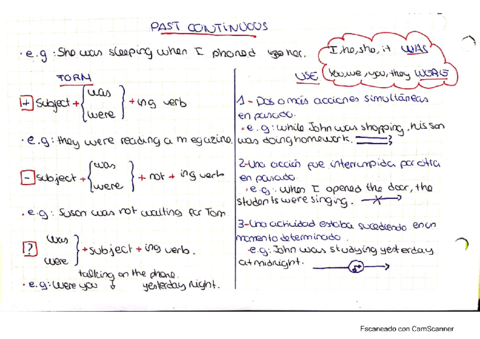 PAST CONTINUOUS
• e.g: She was sleeping when I phoned her.
I, he, she, it WAS
You, we, you, they WERE
TORM
+ subject + was + ing verb
were
• e.g: they were reading a magazine.
- subject + was + not + ing verb
were
• e.g: Susan was not waiting for Tom
? was + subject + ing verb.
were
talking on the phone
• e.g: Were you yesterday night.
USE
1- Dos o más acciones simultáneas
en pasado.
• e.g: while John was shopping, his son
was doing homework.
2- Una acción fue interrumpida por otra
en pasado.
• e.g: when I opened the door, the
students were singing.
3- Una actividad estaba sucediendo en un
momento determinado.
e.g: John was studying yesterday
at midnight.
Escaneado con CamScanner